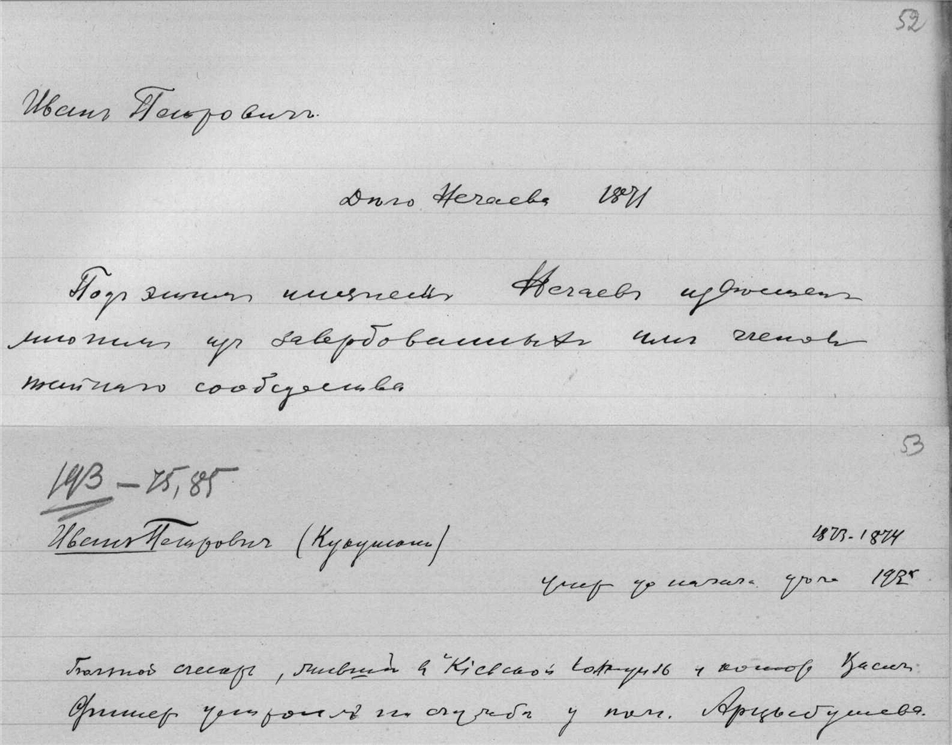 52
Иванъ Петровичъ.
Дѣло Нечаева 1871
Подъ этимъ именемъ Нечаевъ извѣстенъ
многимъ изъ завербованныхъ имъ членовъ
тайнаго сообщества
53
193 – 75, 85
Иванъ Петровичъ (Кукушкинъ)
1873-1874
умер до начала дѣла 193х
слесарь, жившій в "Кіевской коммунѣ" и
Фишер устроилъ на службу у пом. Арцыбушева.